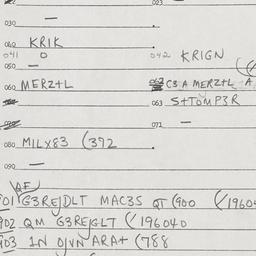 023
030 —
040 KRIK
041 0 042 KRIGN
050 —
060 MERZ+L 062 C3A MERZ+L A
063 S+TOMP3R
071 —
080 MILX83 (372
090 —
QF
901 G3REJDLT MAC3S QT (900 (/1960
902 QM G3REJGLT (/196040
903 1N OJVN ARA+ (788